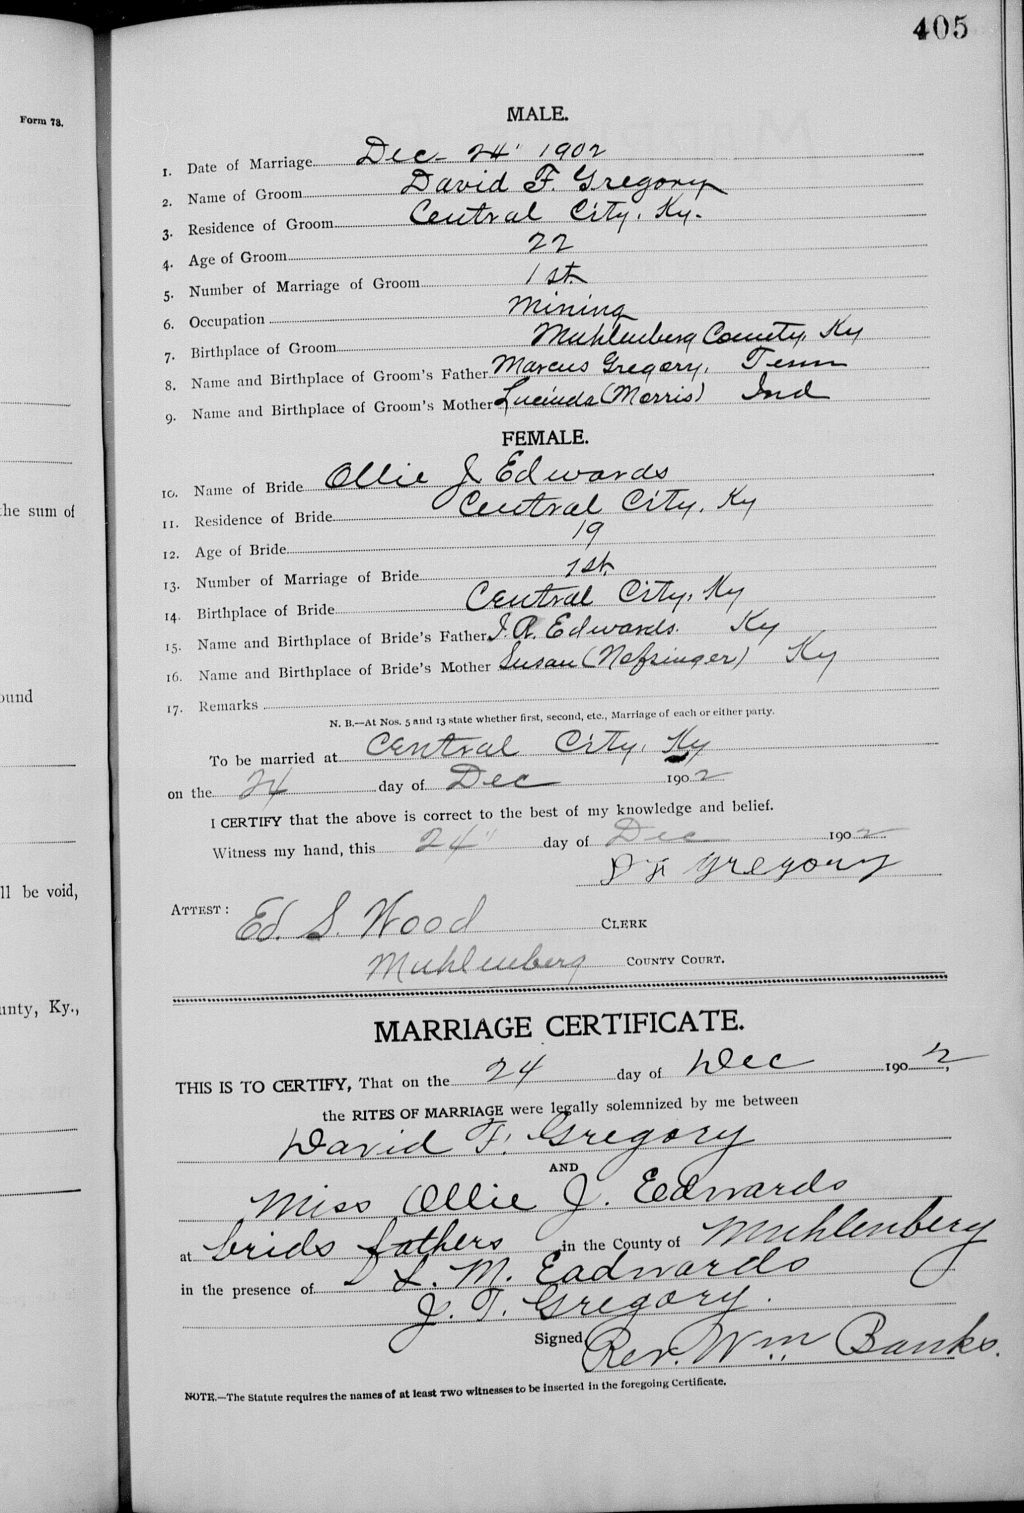 405
Form 78.
MALE.
1. Date of Marriage Dec 24" 1902
2. Name of Groom David F. Gregory
3. Residence of Groom Central City, Ky.
4. Age of Groom 22
5. Number of Marriage of Groom 1st
6. Occupation Mining
7. Birthplace of Groom Muhlenberg County, Ky
8. Name and Birthplace of Groom's Father Marcus Gregory, Tenn
9. Name and Birthplace of Groom's Mother Lucinda (Morris) Ind
FEMALE.
10. Name of Bride Ollie J Edwards
11. Residence of Bride Central City, Ky
the sum of
12. Age of Bride 19
13. Number of Marriage of Bride 1st
14. Birthplace of Bride Central City, Ky
15. Name and Birthplace of Bride's Father J. R. Edwards. Ky
16. Name and Birthplace of Bride's Mother Susan (Nofsinger) Ky
17. Remarks
ound
N. B.—At Nos. 5 and 13 state whether first, second, etc., Marriage of each or either party.
To be married at Central City, Ky
on the 24 day of Dec 1902
I CERTIFY that the above is correct to the best of my knowledge and belief.
Witness my hand, this 24" day of Dec 1902
D F Gregory
ll be void,
ATTEST: Ed. S. Wood CLERK
Muhlenberg COUNTY COURT.
unty, Ky.,
MARRIAGE CERTIFICATE.
THIS IS TO CERTIFY, That on the 24 day of Dec 1902,
the RITES OF MARRIAGE were legally solemnized by me between
David F. Gregory
AND
Miss Ollie J. Eedwards
at brids fathers in the County of Muhlenbery
in the presence of L. M. Eadwards
J. T. Gregory.
Signed Rev. Wm Banks.
NOTE.—The Statute requires the names of at least TWO witnesses to be inserted in the foregoing Certificate.